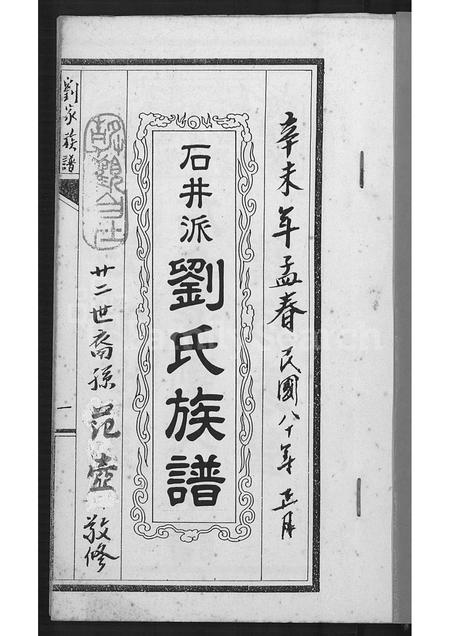 辛未年孟春民國八十年正月
石井派劉氏族譜
廿二世裔孫范壺敬修
劉家族譜
二